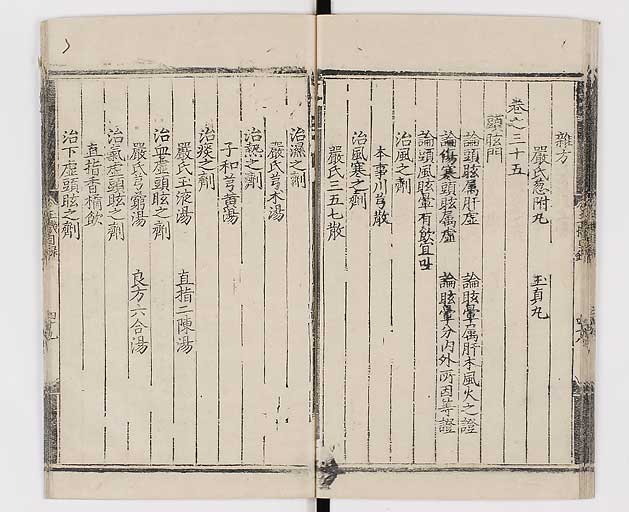 雜方
嚴氏葱附丸 玉真丸
卷之三十五
頭眩門
論頭眩屬肝虛 論眩暈屬肝木風火之證
論傷寒頭眩屬虛 論眩暈分内外所因等證
論頭風眩暈有飲宜吐
治風之劑
本事川芎散
治風寒之劑
嚴氏三五七散
治濕之劑
嚴氏芎朮湯
治熱之劑
子和芎黄湯
治痰之劑
嚴氏玉液湯 直指二陳湯
治血虛頭眩之劑
嚴氏芎藭湯 良方六合湯
治氣虛頭眩之劑
直指香橘飲
治下虛頭眩之劑